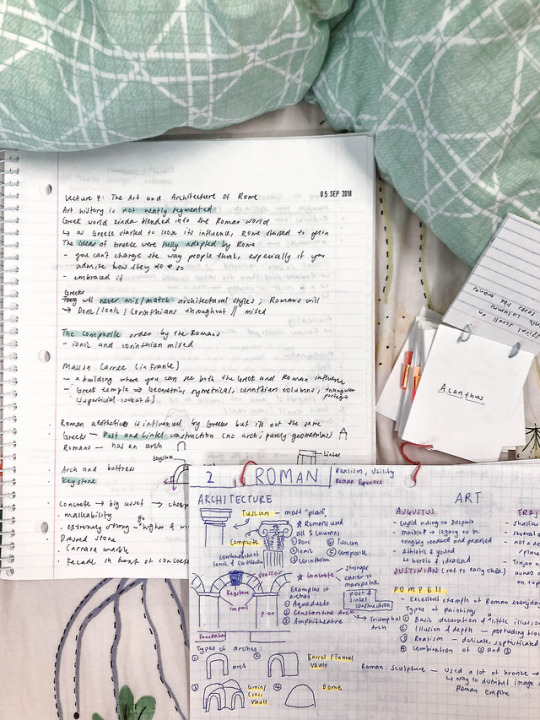 Lecture 4: The Art and Architecture of Rome
05 SEP 2018
Art history is not neatly segmented
Greek world kinda blended into the Roman world
↳ as Greece started to lose its influence, Rome started to gain
The ideas of Greece were fully adopted by Rome
- you can't change the way people think, especially if you
admire how they do so
- embraced it
Greeks
will never mis/match architectural styles; Romans will
→ Doric/Ionic/Corinthians throughout // mixed
The composite order by the Romans
- ionic and corinthian mixed
Maison Carree (in France)
- a building where you can see both the Greek and Roman influence
- Greek temple → Geometric, symetrical, corinthian columns, triangular
Roman aesthetics is influenced by Greeks but is not the same
Greeks - Post and Lintel construction (no arch; purely geometrics)
Romans - has an arch
Lintel
Arch and buttress
Keystone
Concrete → big asset → cheap
malleability
- extremely strong → higher & w
Dressed stone
- Carrara marble
- Facade in front of concrete
Acanthus
2 ROMAN
Realism, Utility
Roman Empire
ARCHITECTURE
Tuscan - most "plain"
★ Romans used
all 5 columns
① Doric ④ Tuscan
② Ionic ⑤ Composite
③ Corinthian
Composite
combination of
Ionic & Corinthian
★ concrete - stronger
easier to
manipulate
Keystone
impost
Pier
Examples of
arches:
① Aqueducts
② Constantine Arch
③ Amphitheatre
post &
lintel
construction
Triumphal
Arch
Types of arches:
arch
Barrel/Tunnel
Vault
Groin/
Cross
Vault
Dome
ART
AUGUSTUS
- cupid riding on dolphin
- Athletic & young
JUSTINIAN (ref to early chr.)
POMPEII
- Excellent example of Roman everyday
Types of Painting
① Basic decoration & little illusion
② Illusion of depth - protruding
③ Realism - delicate, sophisticated
④ Combination of ② and ③
Roman sculpture - used a lot of bronze →
↳ way to distribute image of
Roman Empire